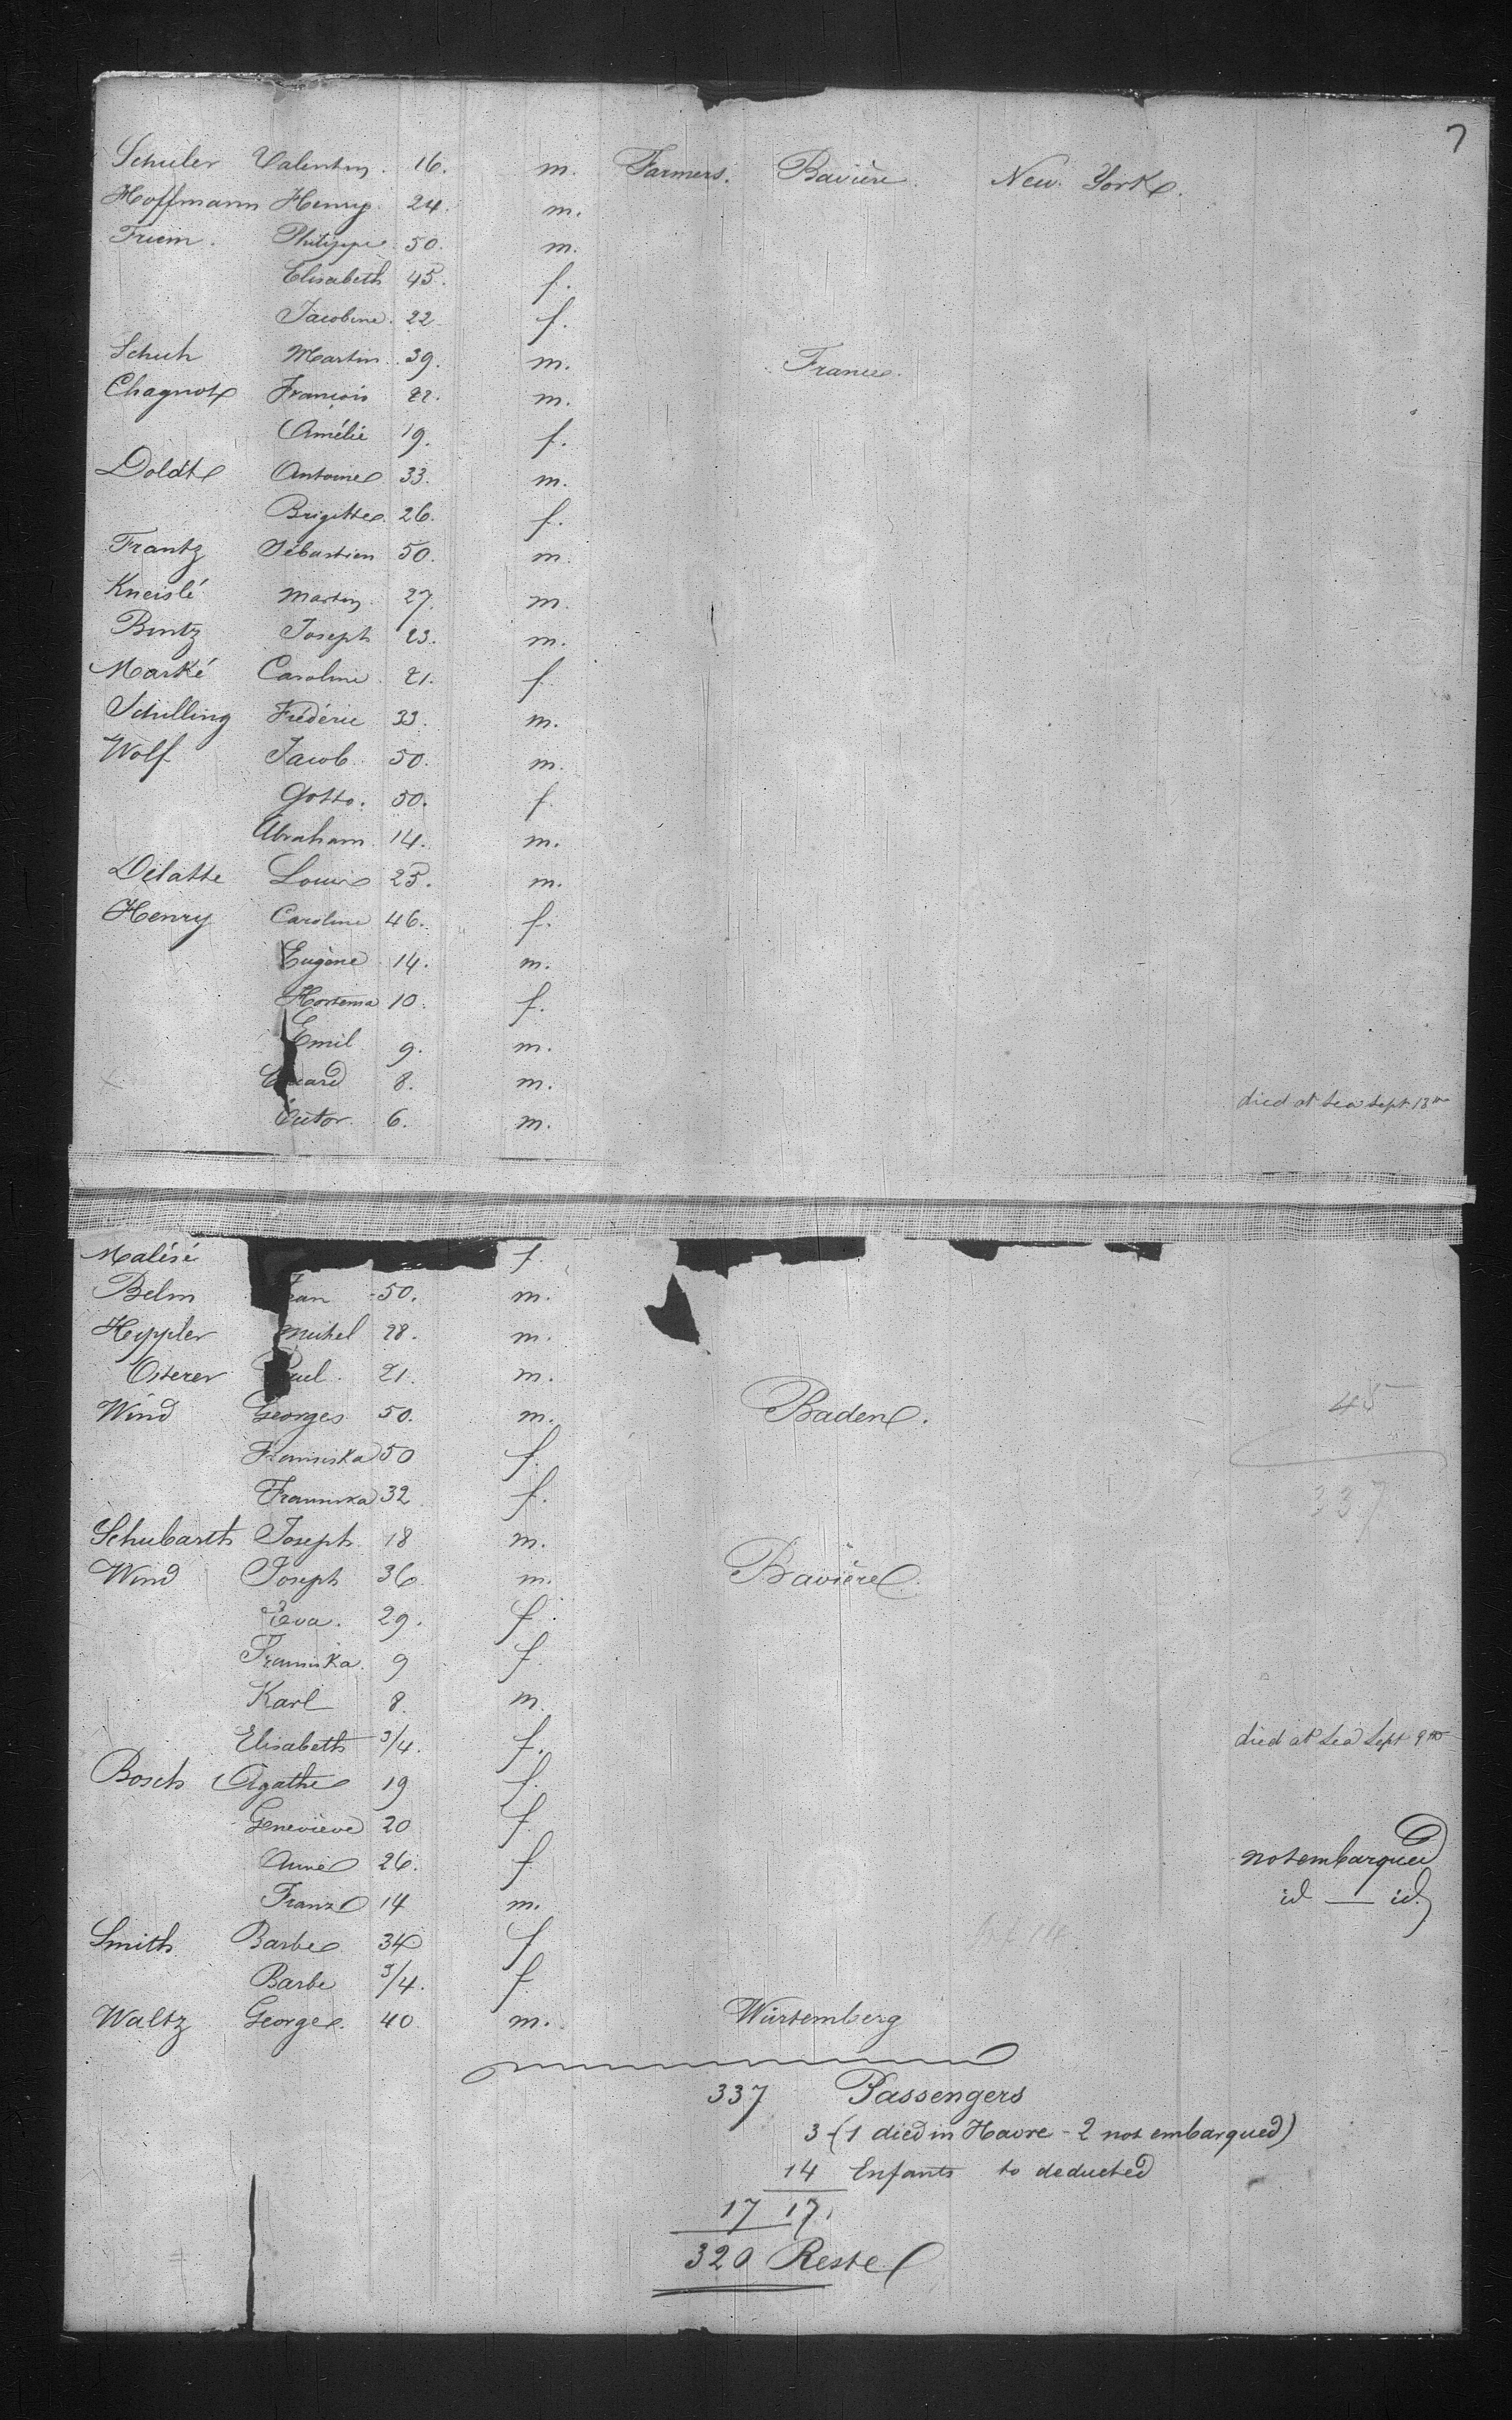 7
Schuler Valentin. 16. m. Farmers. Bavière. New York.
Hoffmann Henry. 24. m.
Triem. Philippe. 50. m.
Elisabeth 45. f.
Jacobine. 22 f.
Schuh Martin. 39. m. France.
Chagnot François 22. m.
Amélie 19. f.
Doldt Antoine 33. m.
Brigitte. 26. f.
Frantz Sébastien 50. m.
Kneislé Martin. 27. m.
Bintz Joseph 23. m.
Marké Caroline. 21. f.
Schilling Frédéric 33. m.
Wolf Jacob. 50. m.
Gotto. 50. f.
Abraham. 14. m.
Delatte Louis 25. m.
Henry Caroline 46. f.
Eugène 14. m.
Hortensa 10. f.
Emil 9. m.
8. m.
6. m. died at sea Sept. 13th
Malésé f.
Belm 50. m.
Heppler Michel 28. m.
Osterer Paul. 21. m.
Wind Georges 50. m. Baden. 45
Franciska 50 f.
Franciska 32 f. 337
Schubarth Joseph. 18 m.
Wind Joseph 36 m. Bavière.
Eva. 29. f.
Franciska. 9 f.
Karl 8. m.
Elisabeth 3/4. f. died at sea Sept 9th
Bosch Agathe 19 f.
Geneviève 20 f.
Anne 26. f. not embarqued
Franz 14 m. id — id.
Smith Barbe 34 f.
Barbe 3/4. f.
Waltz George. 40 m. Würtemberg
337 Passengers
3 (1 died in Havre - 2 not embarqued)
14 Enfants to deducted
17 17.
320 Reste